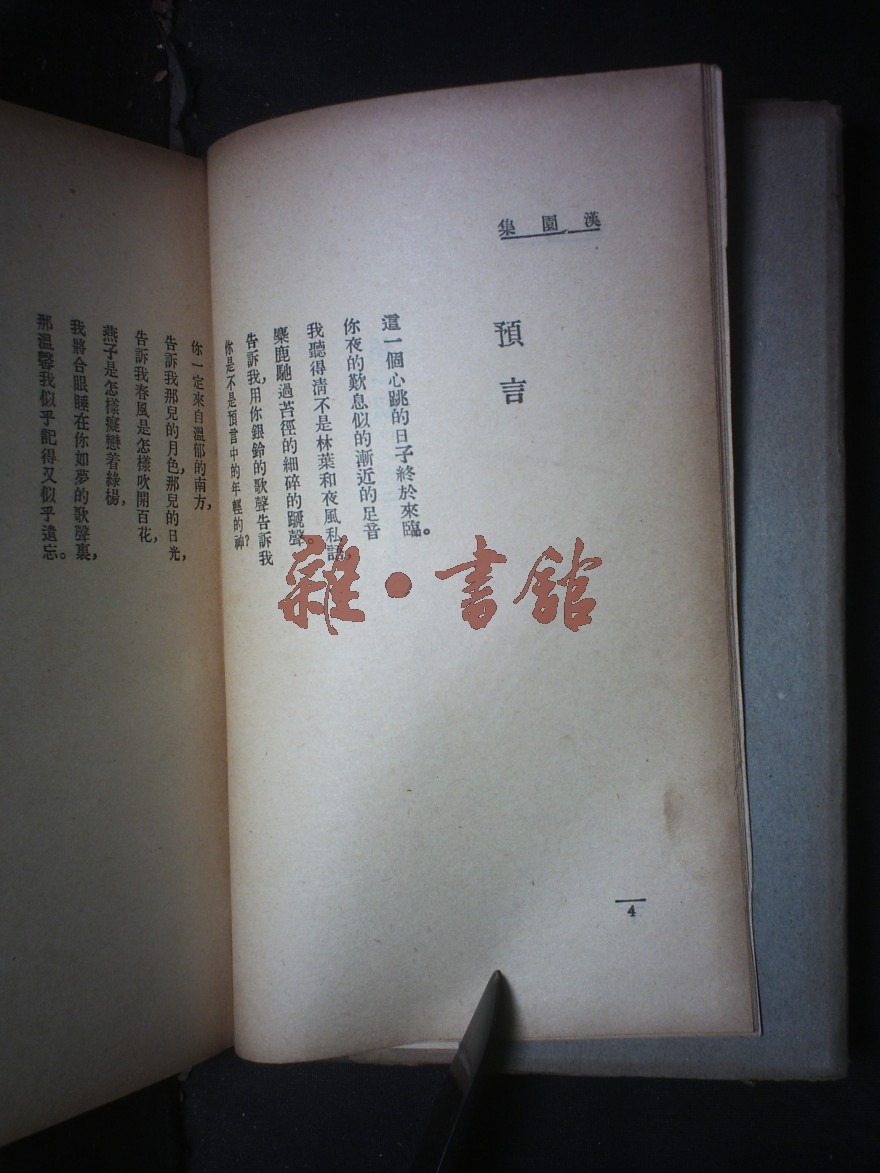 漢園集
預言
這一個心跳的日子終於來臨。
你夜的歎息似的漸近的足音
我聽得清不是林葉和夜風私語,
麋鹿馳過苔徑的細碎的蹄聲
告訴我,用你銀鈴的歌聲告訴我
你是不是預言中的年輕的神?
你一定來自溫郁的南方,
告訴我那兒的月色那兒的日光,
告訴我春風是怎樣吹開百花,
燕子是怎樣癡戀着綠楊,
我將合眼睡在你如夢的歌聲裏,
那溫馨我似乎記得又似乎遺忘。
4
雜·書館